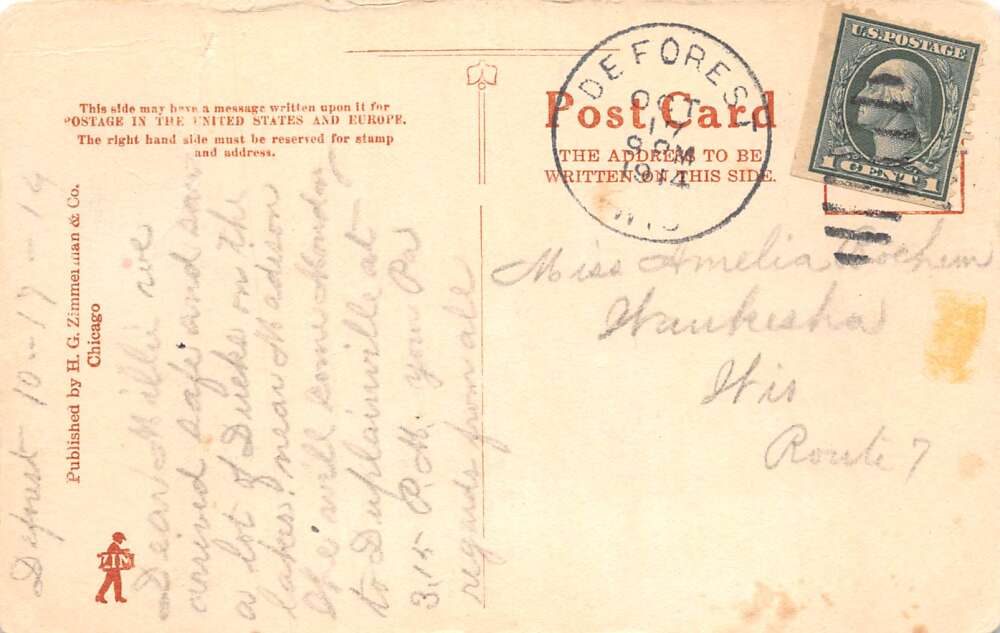 This side may have a message written upon it for
POSTAGE IN THE UNITED STATES AND EUROPE.
The right hand side must be reserved for stamp
and address.
Published by H. G. Zimmerman & Co.
Chicago
ZIM
Deforest 10-17-14
Dear Millie we
arrived safe and saw
a lot of Ducks on the
lakes near Madison
We will come Monday
to Duplainville at
3,15 P.M. your Pa
regards from all
Post Card
THE ADDRESS TO BE
WRITTEN ON THIS SIDE.
DE FOREST
OCT
17
8 PM
1914
WIS
U.S. POSTAGE
1 CENT 1
Miss Amelia
Waukesha
Wis
Route 7